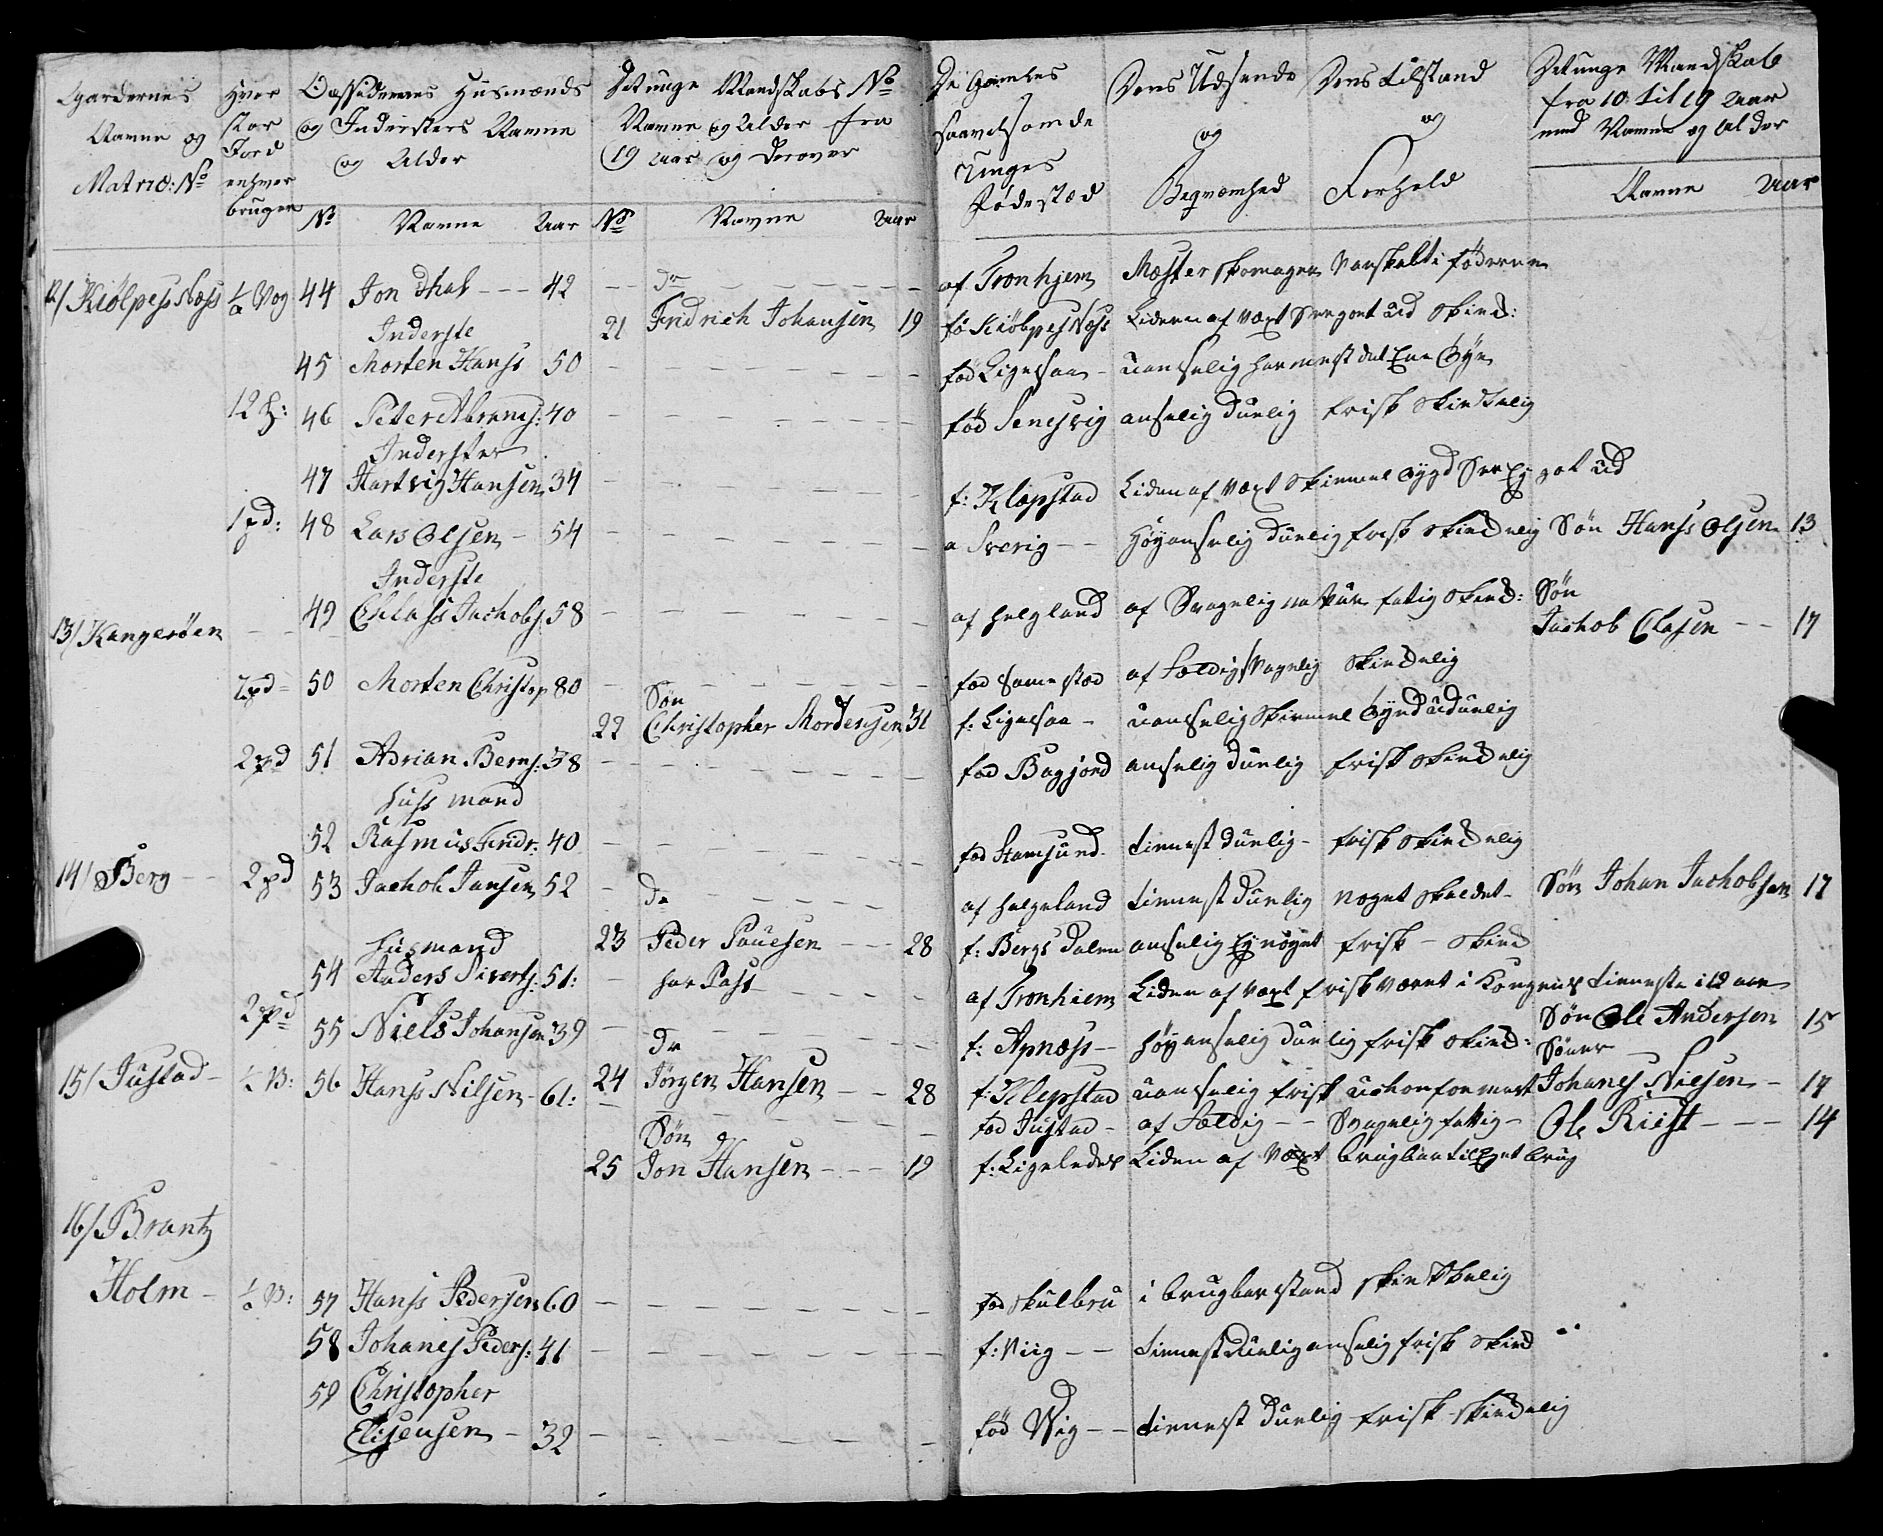 Gaardernes Navne og Matric: No
Hvor stor Jord enhver bruger
Opsiddernes Husmænds og Indersters Navne og Alder
Det unge Mandskabs No Navne og Alder fra 19 aar og derover
De Gamles saavelsom de Unges Fødested
Deres Udseende og Beqvæmhed
Deres tilstand og Forhold
Det unge Mandskab fra 10 til 19 Aar med Navne og Alder
No Navne Aar No Navne Aar Navne Aar
12/ Kiölpesnæss 1/2 Vog 44 Jon Dhal --- 42 -- Dr -- af Tronhjem Mæster skomager
Inderste 21 Fridrich Johansen 19 fö Kiölpesnæss Liden af Vext Seer got ud Skind:
45 Morten Hanss 50 -- fød Ligesaa - uanselig har mest det Ene Øye
12 46 Peter Abrams: 40 -- fød Senesvig anselig duelig frisk Skikkelig
Inderster
47 Hartvig Hansen 34 -- f: Klepstad Liden af Vext
1 pd: 48 Lars Olsen - 54 -- a Sverig -- Høyanselig duelig frisk Søn Hanss Olsen 13
Inderste
49 Chlass Jachobs. 58 -- af Helgland af Svagelig fatig Søn
13/ Kangeröen -- Jachob Clasen -- 17
2 pd 50 Morten Christop 80 -- fød samested af Ældig Svagelig
Søn
22 Christopher Mordensen 31 f: Ligesaa - uanselig
2 pd 51 Adrian Berns: 38 -- fød Bagjord anselig duelig frisk
Huss mand
52 Rasmus Fridr. 40 -- fød Stamsund tienest duelig - frisk
14/ Berg -- 2 pd 53 Jachob Jansen 52 - Dr -- af Helgeland tienest duelig noget Søn Johan Jachobsen 17
Husmand 23 Peder Pouesen --- 28 f: Bergs Dalen anselig frisk - Skind
54 Anders Siverts: 51: - har Pass -- af Tronhiem Liden af Vext frisk været i Kongens tieneste i 12 aar
2 pd 55 Niels Johansen 39 -- Dr -- f: Apnæss - høy anselig duelig frisk Søn Ole Andersen 15
Sønner
15/ Justad - 1/2 V: 56 Hanss Nilsen - 61: 24 Jörgen Hansen -- 28 f: Klepstad uanselig frisk Johanes Nielsen - 17
Søn fød Justad - af Ældig -- Svagelig fattig - Ole Riest --- 14
25 Jon Hansen --- 19 f: Ligeledes Liden af Vext
16/ Brantz
Holm - 1/2 V: 57 Hanss Pedersen 60 -- fød Skulbru i brugbar stand
58 Johanes Peders: 41 -- f: Viig -- tienest duelig anselig frisk Skind
59 Christopher
Elisensen - 32 -- fød Vig -- tienest duelig frisk